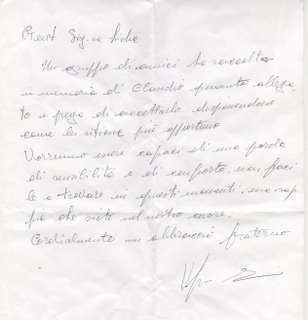 Gent. Sig.ra Lidia
Un gruppo di amici ha raccolto
in memoria di Claudio quanto allega
to e prega di accettarlo disponendone
come lei ritiene più opportuno
Vorremmo essere capaci di una parola
di sensibilità e di conforto, non faci
le a trovare in questi momenti, ma sap
pia che siete nel nostro cuore.
Cordialmente un abbraccio fraterno